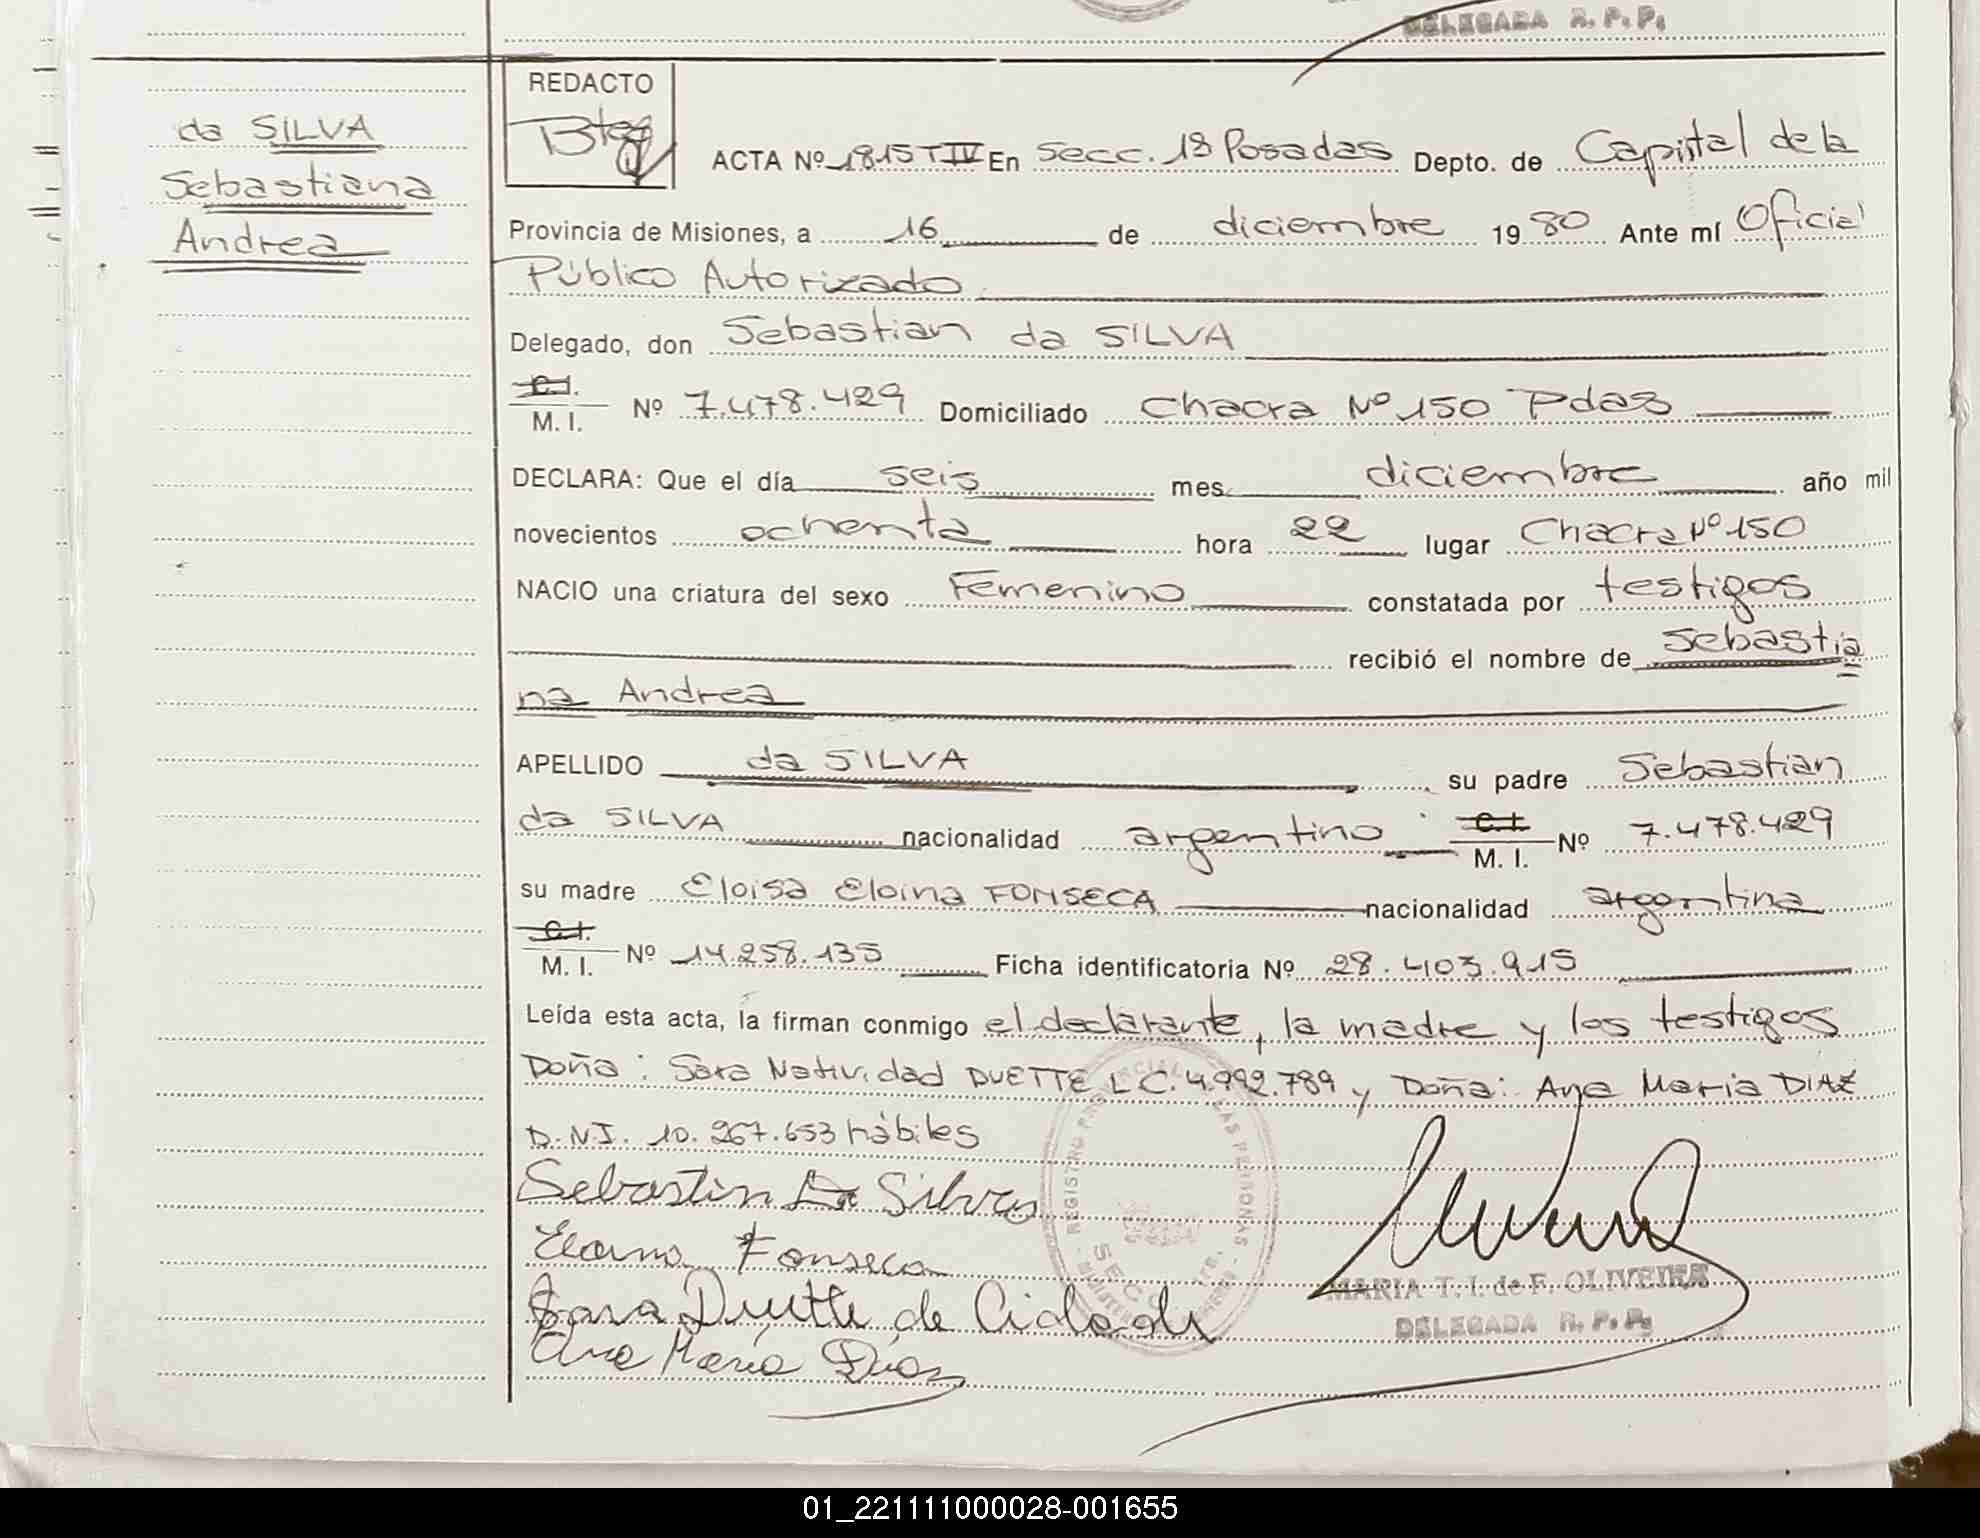 DELEGADA R. P. P.
da SILVA
Sebastiana
Andrea
REDACTO
ACTA Nº 1815 T IV En Secc. 1ª Posadas Depto. de Capital de la
Provincia de Misiones, a 16 de diciembre 1980 Ante mí Oficial
Público Autorizado
Delegado, don Sebastian da SILVA
C.I.
M. I. Nº 7.478.429 Domiciliado Chacra Nº 150 Pdas
DECLARA: Que el día seis mes diciembre año mil
novecientos ochenta hora 22 lugar Chacra Nº 150
NACIO una criatura del sexo Femenino constatada por testigos
recibió el nombre de Sebastia
na Andrea
APELLIDO da SILVA su padre Sebastian
da SILVA nacionalidad argentino C.I. M. I. Nº 7.478.429
su madre Eloisa Eloina FONSECA nacionalidad argentina
C.I.
M. I. Nº 14.258.135 Ficha identificatoria Nº 28.403.915
Leída esta acta, la firman conmigo el declarante, la madre y los testigos
Doña: Sara Natividad DUETTE L.C. 4.992.789 y Doña: Ana Maria DIAZ
D.N.I. 10.267.653 hábiles
Sebastin Da Silva
Fonseca
Sara Duette de
Ana María Díaz
REGISTRO PROVINCIAL DE LAS PERSONAS
SECC
MARIA T. I. de F. OLIVEIRA
DELEGADA R. P. P.
01_221111000028-001655